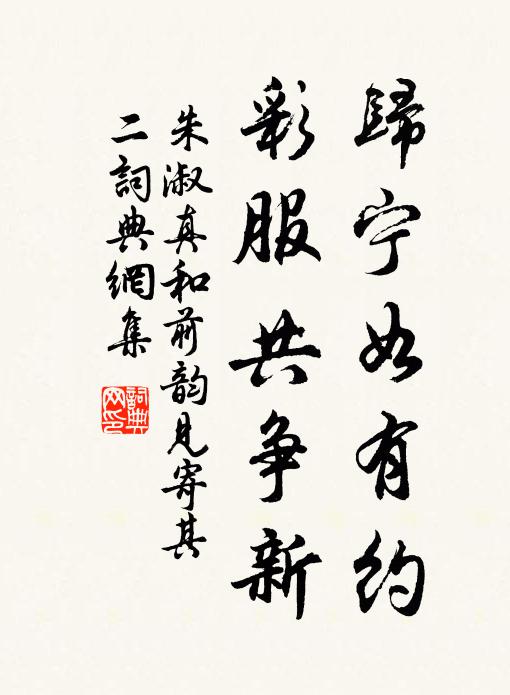 歸宁如有约
彩服共争新
朱淑真和前韵见寄其
二詞典網集
詞典
网印